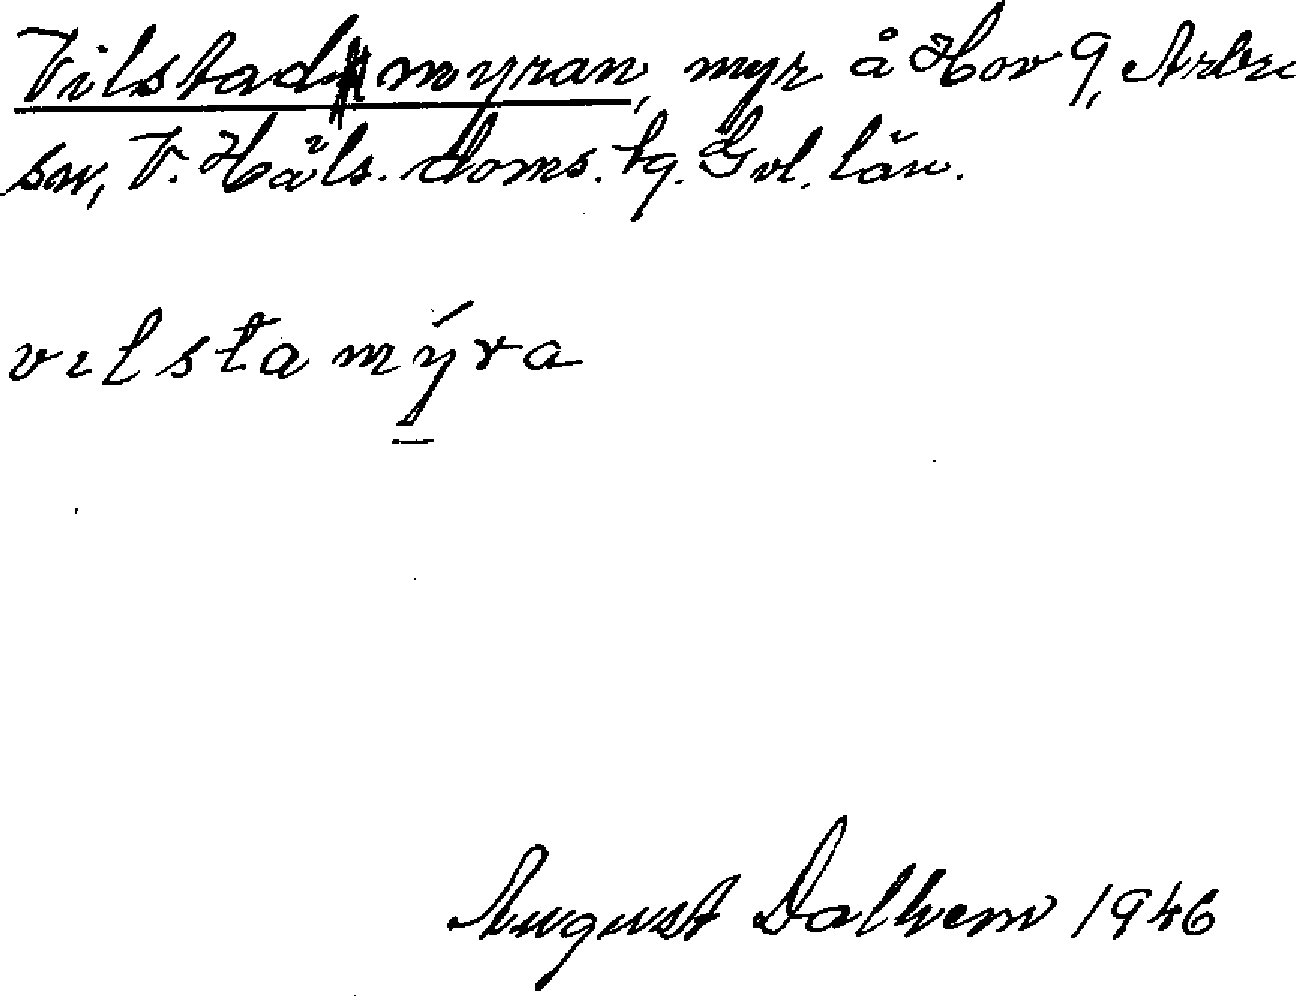 Vilstadmyran, myr å Hov 9, Arbrå
sn, V. Häls. doms. tg. Gvl. län.
vɩlstamýra
August Dalhem 1946